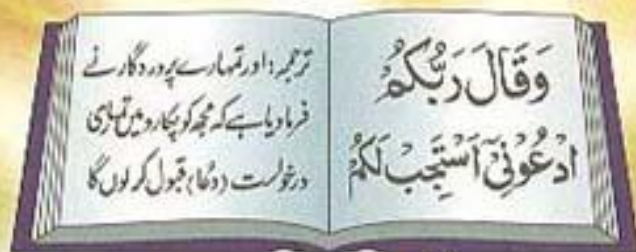 وَقَالَ رَبُّكُمُ
ادْعُوْنِیْٓ اَسْتَجِبْ لَكُمْ
ترجمہ: اور تمہارے پروردگار نے
فرمادیا ہے کہ مجھ کو پکارو میں تمہاری
درخواست (دعا) قبول کرلوں گا